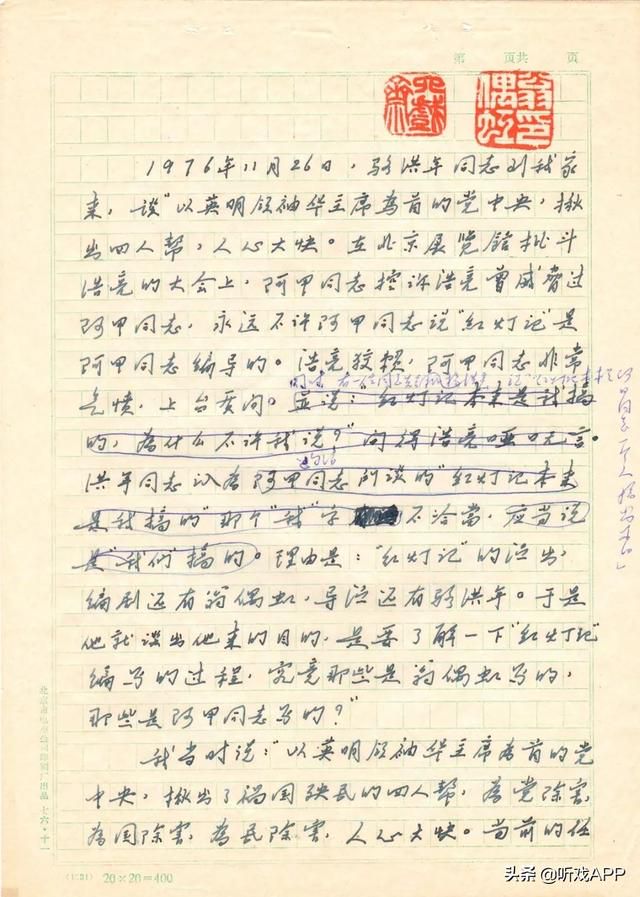 第 页共 页
翁偶虹印
1976年11月26日，骆洪年同志到我家
来，谈"以英明领袖华主席为首的党中央，揪
出四人帮，人心大快。在北京展览馆批斗
浩亮的大会上，阿甲同志控诉浩亮曾威胁过
阿甲同志，永远不许阿甲同志说"红灯记"是
阿甲同志编导的。浩亮狡赖，阿甲同志非常
气愤，上台质问。并说："红灯记本来是我搞
的，为什么不许我说？"问得浩亮哑口无言。
洪年同志认为阿甲同志所谈的"红灯记本来
是我搞的"那个"我"字不洽当，应当说
是"我们"搞的。理由是："红灯记"的演出，
编剧还有翁偶虹，导演还有骆洪年。于是
他就谈出他来的目的，是要了解一下"红灯记"
编写的过程，究竟那些是翁偶虹写的，
那些是阿甲同志写的？"
我当时说："以英明领袖华主席为首的党
中央，揪出了祸国殃民的四人帮，为党除害，
为国除害，为民除害，人心大快。当前的任
北京市电车公司印刷厂出品 七六·十一
(1231) 20×20=400
头条 @听戏APP